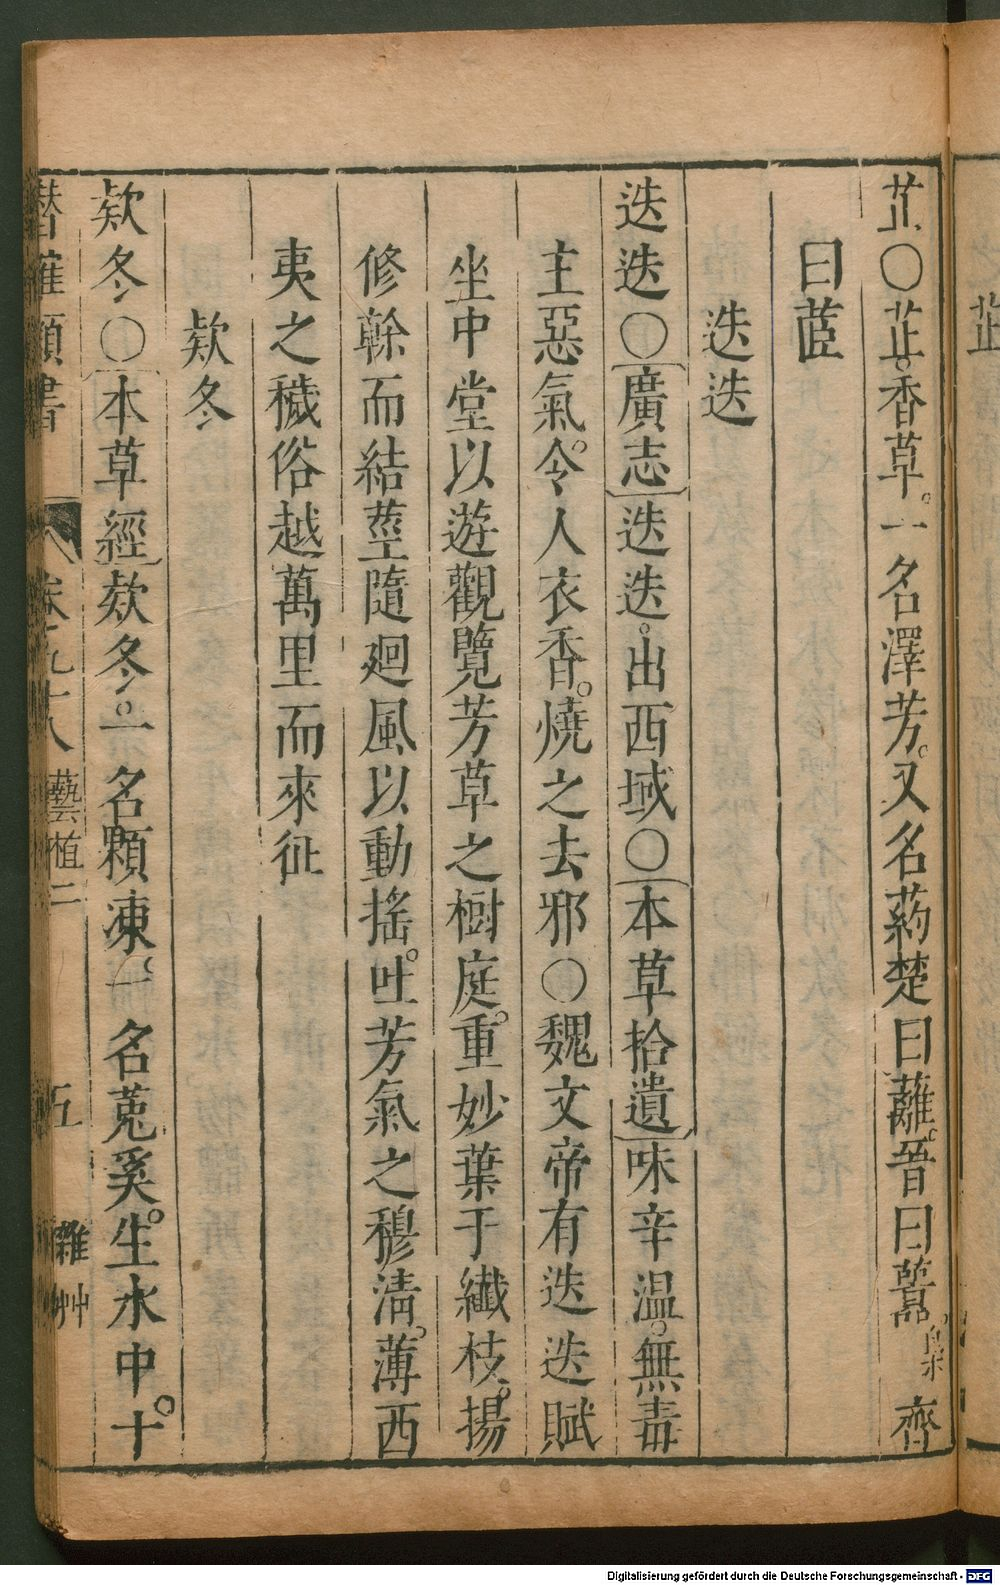 芷〇芷香草。一名澤芳。又名葯楚曰蘺。晉曰虈。齊
曰茝
迭迭
迭迭〇〔廣志〕迭迭出西域〇〔本草拾遺〕味辛溫。無毒
主惡氣。令人衣香。燒之去邪〇魏文帝有迭迭賦
坐中堂以遊觀覽芳草之樹庭。重妙葉于纖枝。揚
修幹而結莖隨廻風以動搖。吐芳氣之穆清。薄西
夷之穢俗越萬里而來征
欵冬
欵冬〇〔本草經〕欵冬。一名顆凍。一名菟奚。生水中。十
潛確類書 卷之九十八 藝植二 五 雜艸
Digitalisierung gefördert durch die Deutsche Forschungsgemeinschaft - DFG